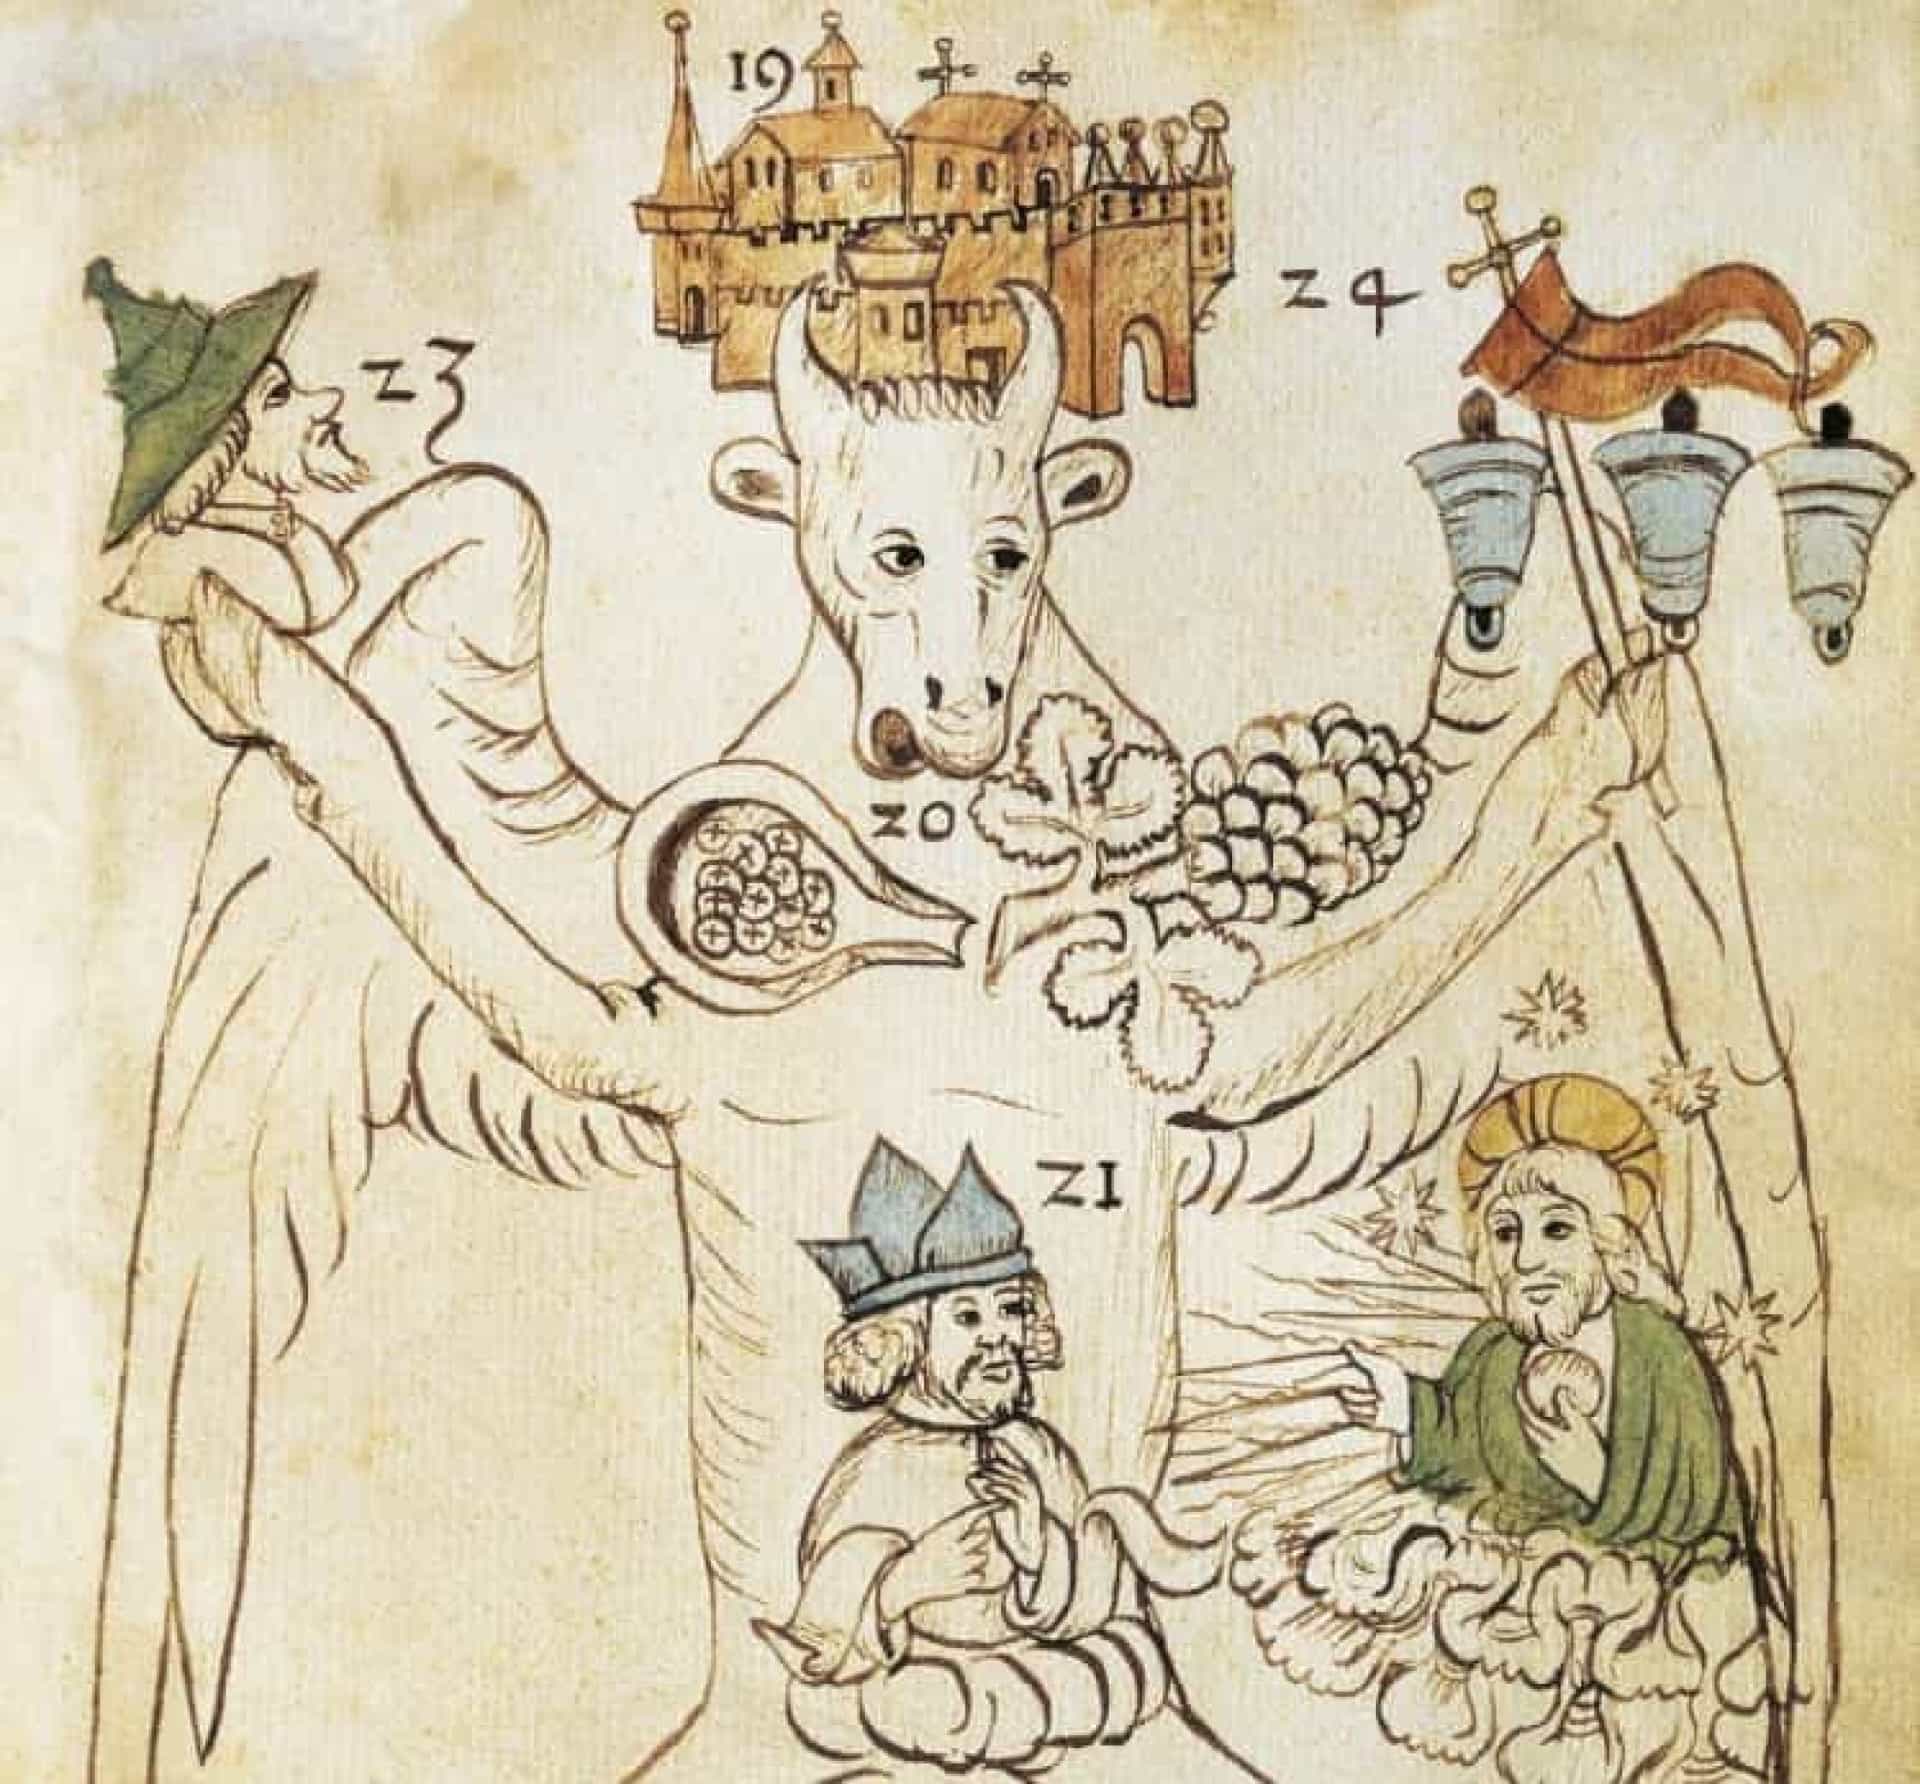 19
24
23
20
21